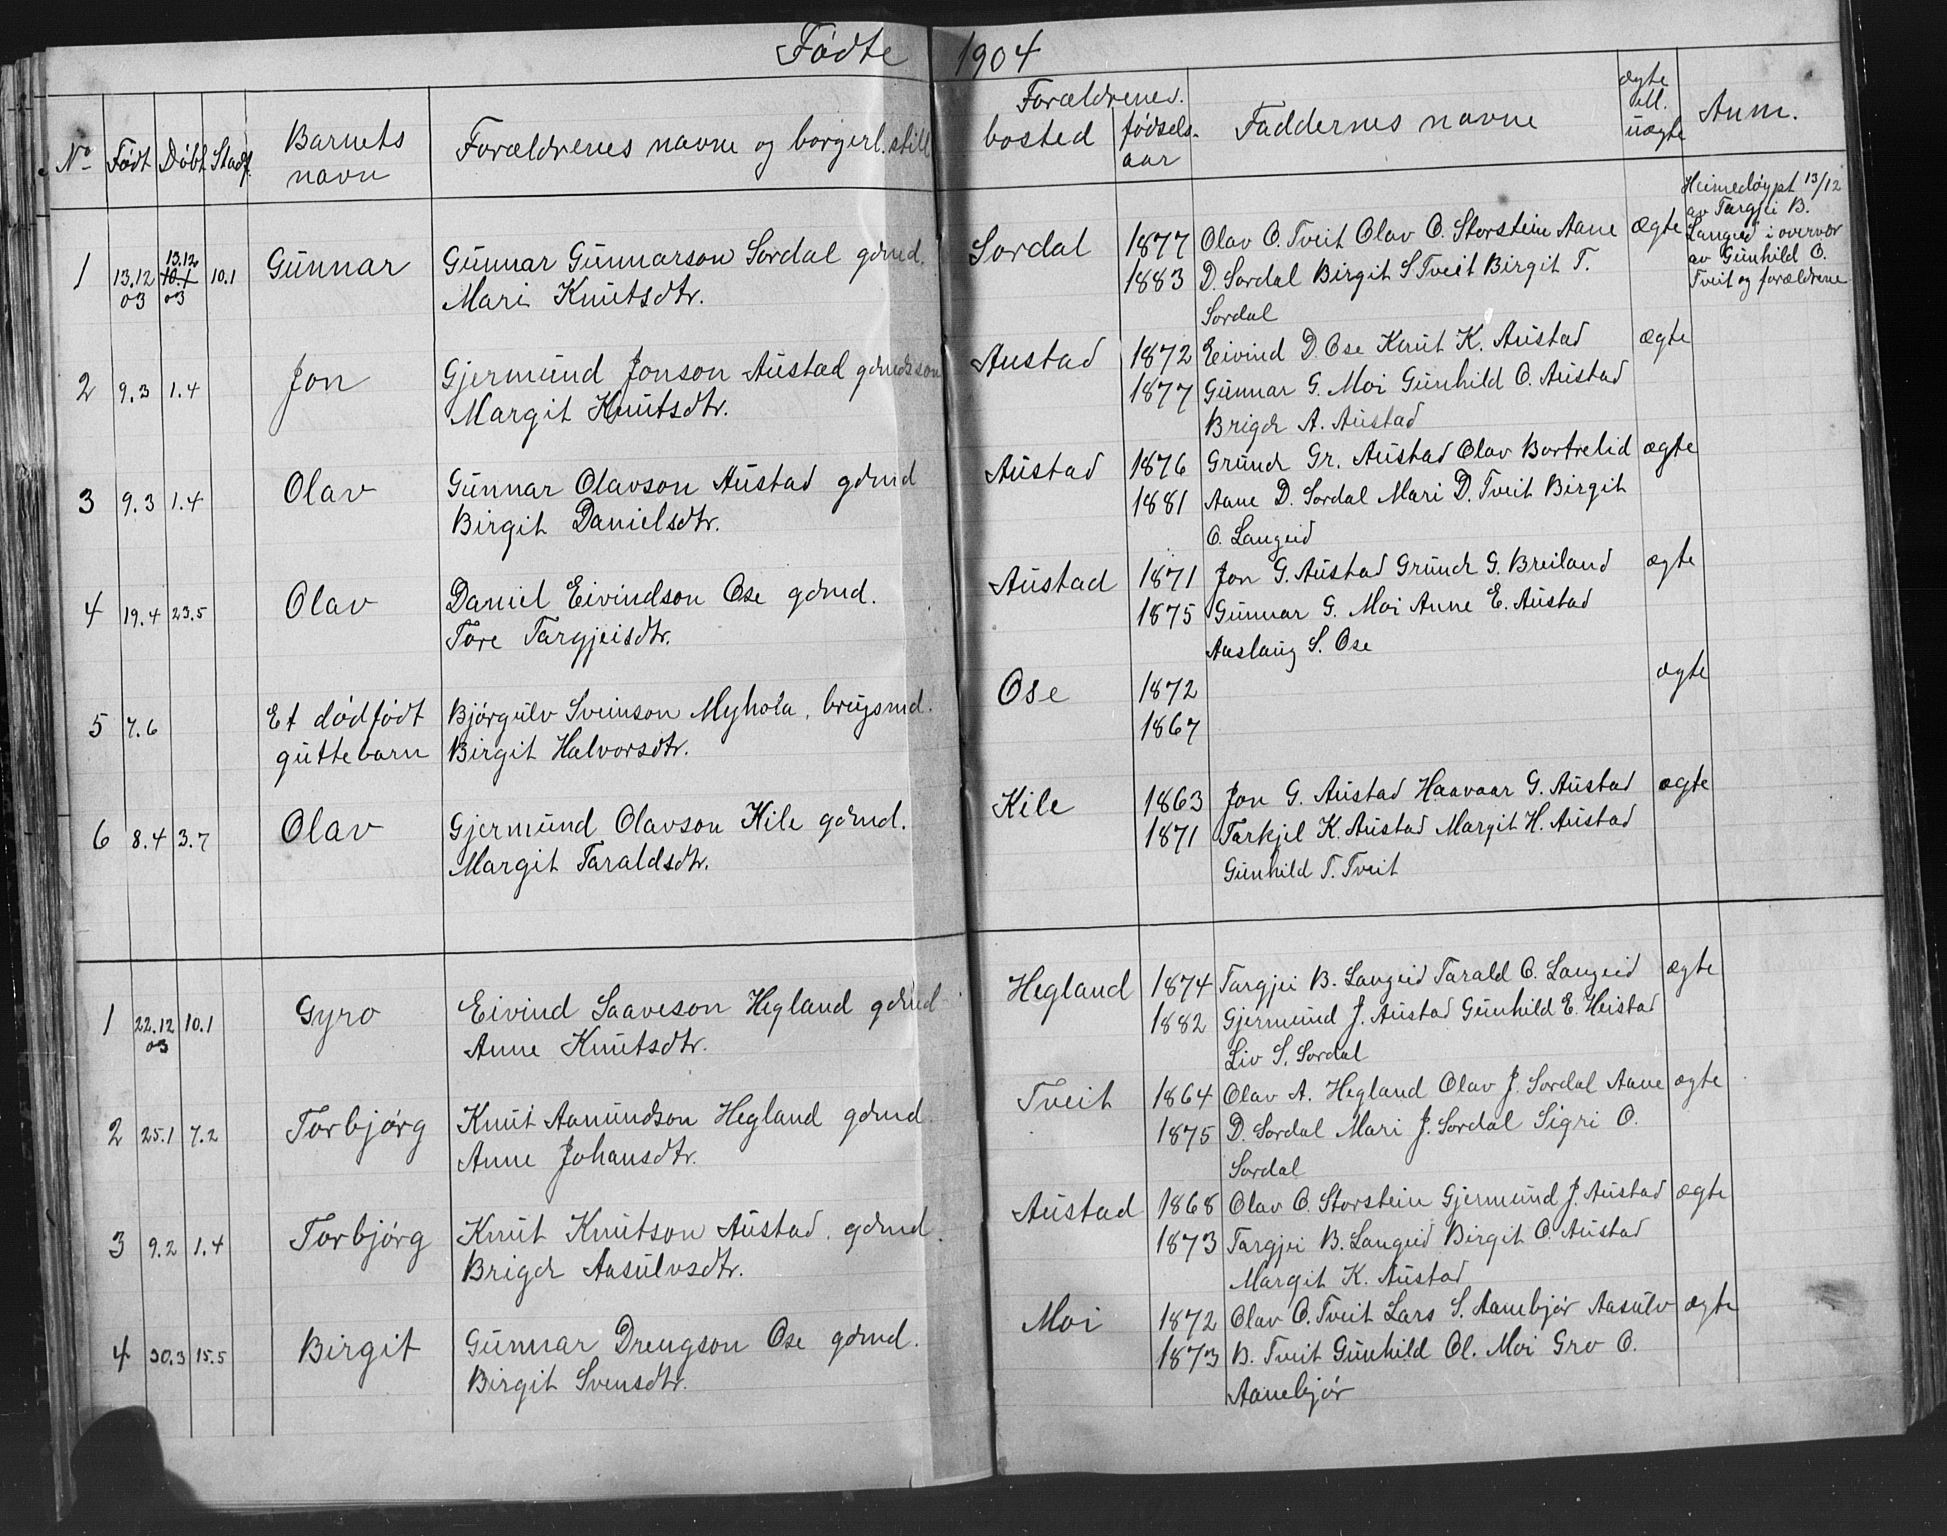 Fødte 1904
No Født Døbt Stadf. Barnets navn Forældrenes navne og borgerl. still Forældrenes. bosted fødsels-aar Faddernes navne ægte ell. uægte Anm.
1 13.12 03 13.12 10.1 03 10.1 Gunnar Gunnar Gunnarson Sordal gdmd. Sordal 1877 Olav O. Tveit Olav O. Storstein Aane ægte Heimedøypt 13/12
Mari Knutsdtr. 1883 D. Sordal Birgit S Tveit Birgit T. av Targjei B.
Sordal Langeid i overvær
av Gunhild O.
Tveit og forældrene
2 9.3 1.4 Jon Gjermund Jonson Austad gdmdsson Austad 1872 Eivind D. Ose Knut K. Austad ægte
Margit Knutsdtr. 1877 Gunnar G. Moi Gunhild O. Austad
Brigdr A. Austad
3 9.3 1.4 Olav Gunnar Olavson Austad gdmd Austad 1876 Grundr Gr. Austad Olav Bortrelid ægte
Birgit Danielsdtr. 1881 Aane D. Sordal Mari D. Tveit Birgit
O. Langeid
4 19.4 23.5 Olav Daniel Eivindson Ose gdmd. Austad 1871 Jon G. Austad Grundr G. Breiland ægte
Tore Targjeisdtr. 1875 Gunnar G. Moi Anne E. Austad
Aaslaug S. Ose
5 7.6 Et dødfødt Bjørgulv Sveinson Myhola, brugsmd. Ose 1872 ægte
guttebarn Birgit Halvorsdtr. 1867
6 8.4 3.7 Olav Gjermund Olavson Kile gdmd. Kile 1863 Jon G. Austad Haavaar G. Austad ægte
Margit Taraldsdtr. 1871 Tarkjel K. Austad Margit H. Austad
Gunhild T. Tveit
1 22.12 03 10.1 Gyro Eivind Saaveson Hegland gdmd Hegland 1874 Targjei B. Langeid Tarald O. Langeid ægte
Anne Knutsdtr. 1882 Gjermund J. Austad Gunhild E. Heistad
Liv S. Sordal
2 25.1 7.2 Torbjørg Knut Aamundson Hegland gdmd. Tveit 1864 Olav A. Hegland Olav J. Sordal Aane ægte
Anne Johansdtr. 1875 D. Sordal Mari J. Sordal Sigri O.
Sordal
3 9.2 1.4 Torbjørg Knut Knutson Austad. gdmd. Austad 1868 Olav O. Storstein Gjermund J. Austad ægte
Brigdr Aasulvsdtr. 1873 Targjei B. Langeid Birgit O. Austad
Margit K. Austad
4 30.3 15.5 Birgit Gunnar Drengson Ose gdmd. Moi 1872 Olav O. Tveit Lars S. Aanebjør Aasulv ægte
Birgit Svensdtr. 1873 B. Tveit Gunhild Ol. Moi Gro O.
Aanebjør